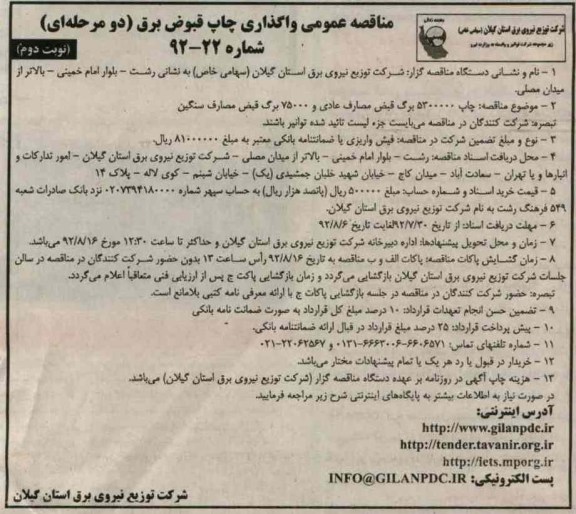 شرکت توزیع نیروی برق استان گیلان (سهامی خاص)
مناقصه عمومی واگذاری چاپ قبوض برق (دو مرحله‌ای)
شماره ۲۲-۹۲
(نوبت دوم)
۱ - نام و نشانی دستگاه مناقصه گزار: شرکت توزیع نیروی برق استان گیلان (سهامی خاص) به نشانی رشت - بلوار امام خمینی - بالاتر از
میدان مصلی.
۲ - موضوع مناقصه: چاپ ۵۳۰۰۰۰۰ برگ قبض مصارف عادی و ۷۵۰۰۰ برگ قبض مصارف سنگین
تبصره: شرکت کنندگان در مناقصه می‌بایست جزء لیست تائید شده توانیر باشند.
۳ - نوع و مبلغ تضمین شرکت در مناقصه: فیش واریزی یا ضمانتنامه بانکی معتبر به مبلغ ۸۱۰۰۰۰۰۰ ریال.
۴ - محل دریافت اسناد مناقصه: رشت - بلوار امام خمینی - بالاتر از میدان مصلی - شرکت توزیع نیروی برق استان گیلان - امور تدارکات و
انبارها و یا تهران - سعادت آباد - میدان کاج - خیابان شهید خلبان جمشیدی (یک) - خیابان شبنم - کوی لاله - پلاک ۱۴
۵ - قیمت خرید اسناد و شماره حساب: مبلغ ۵۰۰۰۰۰ ریال (پانصد هزار ریال) به حساب سپهر شماره ۰۲۰۷۳۹۴۱۸۰۰۰۰ نزد بانک صادرات شعبه
۵۴۹ فرهنگ رشت به نام شرکت توزیع نیروی برق استان گیلان.
۶ - مهلت دریافت اسناد: از تاریخ ۹۲/۷/۳۰ لغایت تاریخ ۹۲/۸/۶
۷ - زمان و محل تحویل پیشنهادها: اداره دبیرخانه شرکت توزیع نیروی برق استان گیلان و حداکثر تا ساعت ۱۲:۳۰ مورخ ۹۲/۸/۱۶ می‌باشد.
۸ - زمان گشایش پاکات مناقصه: پاکات الف و ب مناقصه به تاریخ ۹۲/۸/۱۶ رأس ساعت ۱۳ بدون حضور شرکت کنندگان در مناقصه در سالن
جلسات شرکت توزیع نیروی برق استان گیلان بازگشایی می‌گردد و زمان بازگشایی پاکت ج پس از ارزیابی فنی متعاقباً اعلام می‌گردد.
تبصره: حضور شرکت کنندگان در مناقصه در جلسه بازگشایی پاکات ج با ارائه معرفی نامه کتبی بلامانع است.
۹ - تضمین حسن انجام تعهدات قرارداد: ۱۰ درصد مبلغ کل قرارداد به صورت ضمانت نامه بانکی
۱۰ - پیش پرداخت قرارداد: ۲۵ درصد مبلغ قرارداد در قبال ارائه ضمانتنامه بانکی.
۱۱ - شماره تلفنهای تماس: ۶۶۰۶۵۷۱-۶۶۶۳۰۰۶-۰۱۳۱ و ۲۲۰۶۲۵۶۷-۰۲۱
۱۲ - خریدار در قبول یا رد هر یک یا تمام پیشنهادات مختار می‌باشد.
۱۳ - هزینه چاپ آگهی در روزنامه بر عهده دستگاه مناقصه گزار (شرکت توزیع نیروی برق استان گیلان) می‌باشد.
در صورت نیاز به اطلاعات بیشتر به پایگاه‌های اینترنتی شرح زیر مراجعه فرمایید.
آدرس اینترنتی:
http://www.gilanpdc.ir
http://tender.tavanir.org.ir
http://iets.mporg.ir
پست الکترونیکی: INFO@GILANPDC.IR
شرکت توزیع نیروی برق استان گیلان